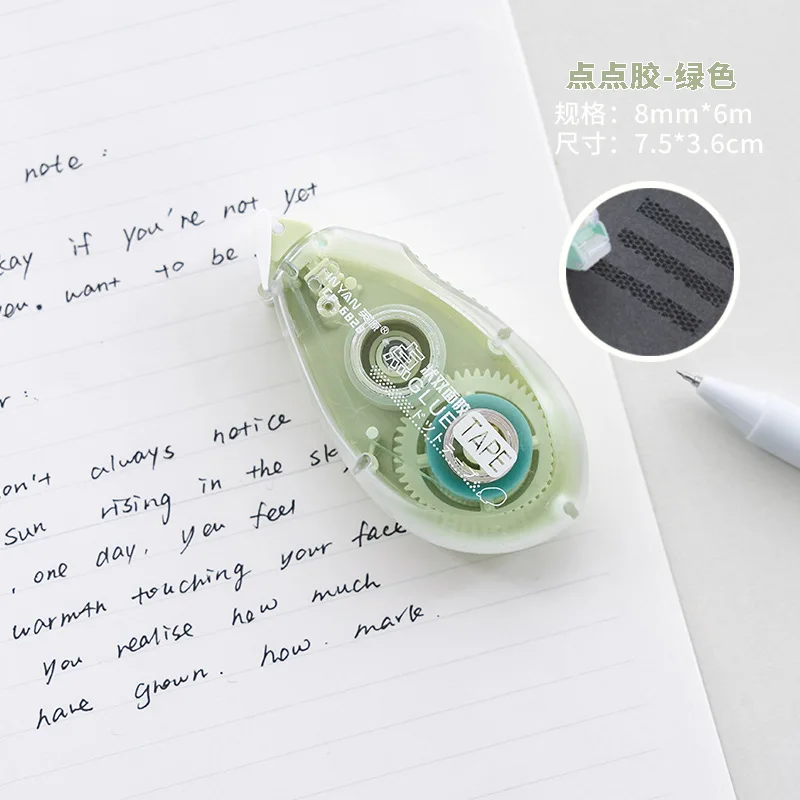 点点胶-绿色
规格：8mm*6m
尺寸：7.5*3.6cm
note :
kay if you're not yet
ou. want to be
r :
on't always notice
sun rising in the sk
, one day, you feel
warmth touching your face
you realise how much
have grown. how. mark.
NYAN 英雁®
6828
点点
双面胶
GLUE
TAPE